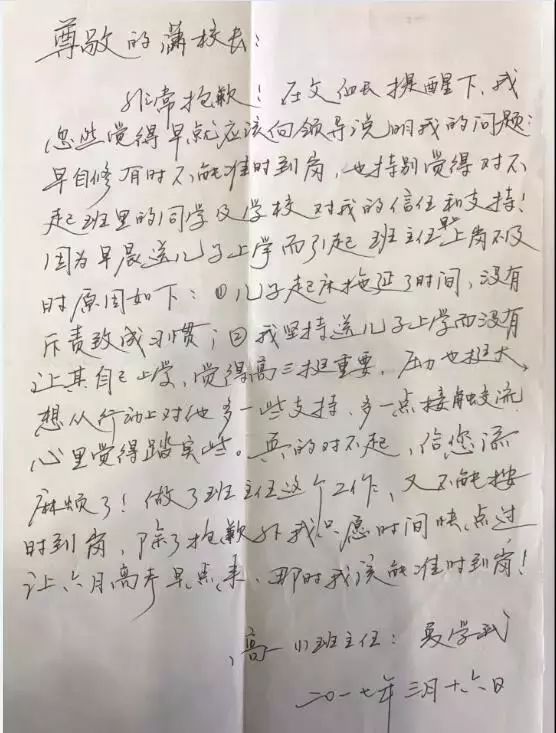 尊敬的潇校长:
非常抱歉!在文似长提醒下,我
忽然觉得早就应该向领导说明我的问题:
早自修有时不能准时到岗,也特别觉得对不
起班里的同学及学校对我的信任和支持!
因为早晨送儿子上学而引起班主任早上岗不及
时原因如下:①儿子起床拖延了时间,没有
斥责致成习惯;②我坚持送儿子上学而没有
让其自己上学,觉得高三挺重要,压力也挺大,
想从行动上对他多一些支持、多一点接触交流
心里觉得踏实些。真的对不起,给您添
麻烦了!做了班主任这个工作,又不能按
时到岗,除了抱歉外我只愿时间快点过
让六月高考早点来,那时我该能准时到岗!
高一(1)班主任:夏学武
二〇一七年三月十六日